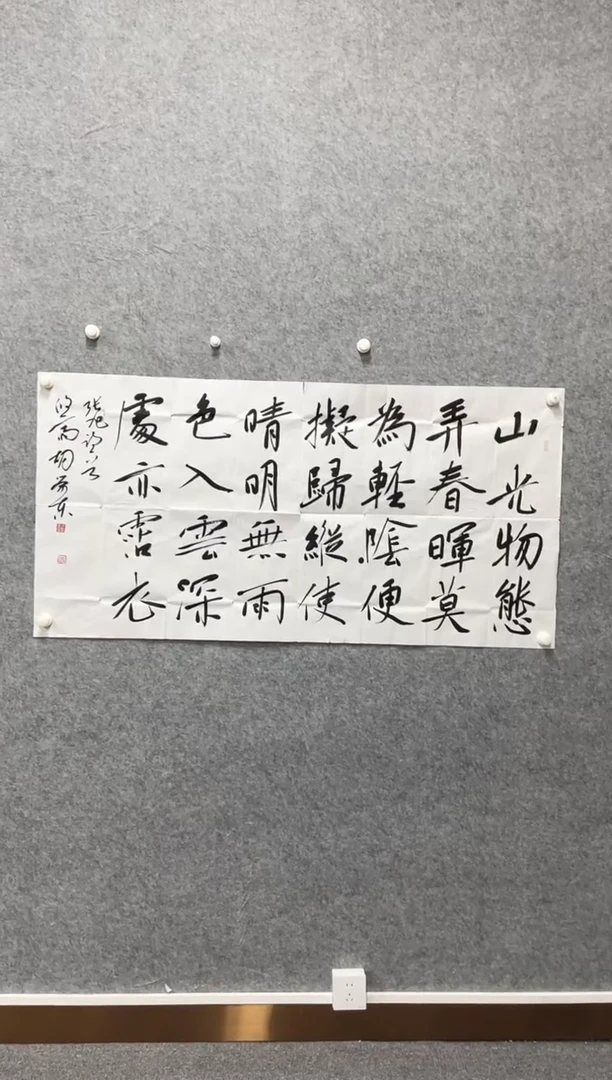 山光物態
弄春暉莫
為輕陰便
擬歸縱使
晴明無雨
色入雲深
處亦霑衣
張旭